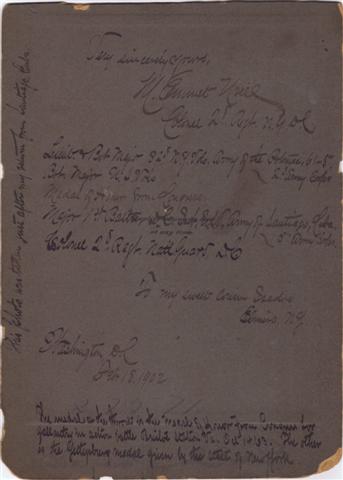 Very sincerely yours,
M. Emmet Urell
Colonel 2d Regt. N.G. D.C.
Lieut. & Bvt. Major 82d N.Y. Vols. Army of the Potomac, 61-
2d Army Corps
Bvt. Major U.S. Vols
Medal of Honor from Congress
Major 1st Battn. D.C. Army of Santiago, Cuba.
5th Army Corps
Colonel 2d Regt. Natl Guard D.C
To my sweet cousin Sadie
Elmira, N.Y.
Washington D.C
Feb. 18, 1902
The medal on the throat is the "Medal of Honor" from Congress for
gallantry in action battle Bristol Station Va. Oct 14 63. The other
is the Gettysburg medal given by the state of New York.
This photo was taken just after my return from Santiago Cuba